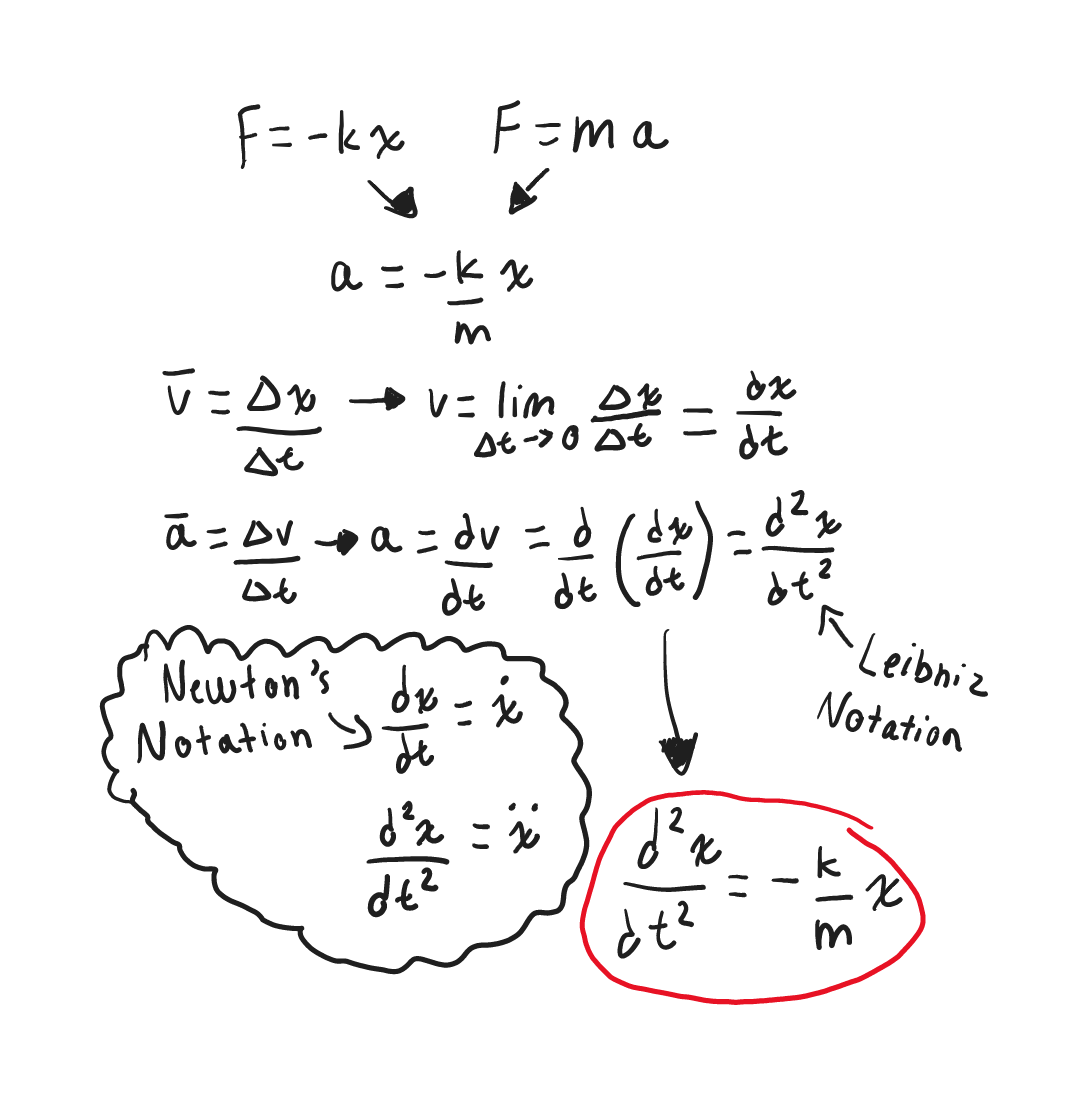 F = -kx F = ma
a = -k/m x
v̄ = Δx/Δt → v = lim Δt→0 Δx/Δt = dx/dt
ā = Δv/Δt → a = dv/dt = d/dt (dx/dt) = d²x/dt²
Leibniz
Notation
Newton's
Notation dx/dt = ẋ
d²x/dt² = ẍ
d²x/dt² = -k/m x